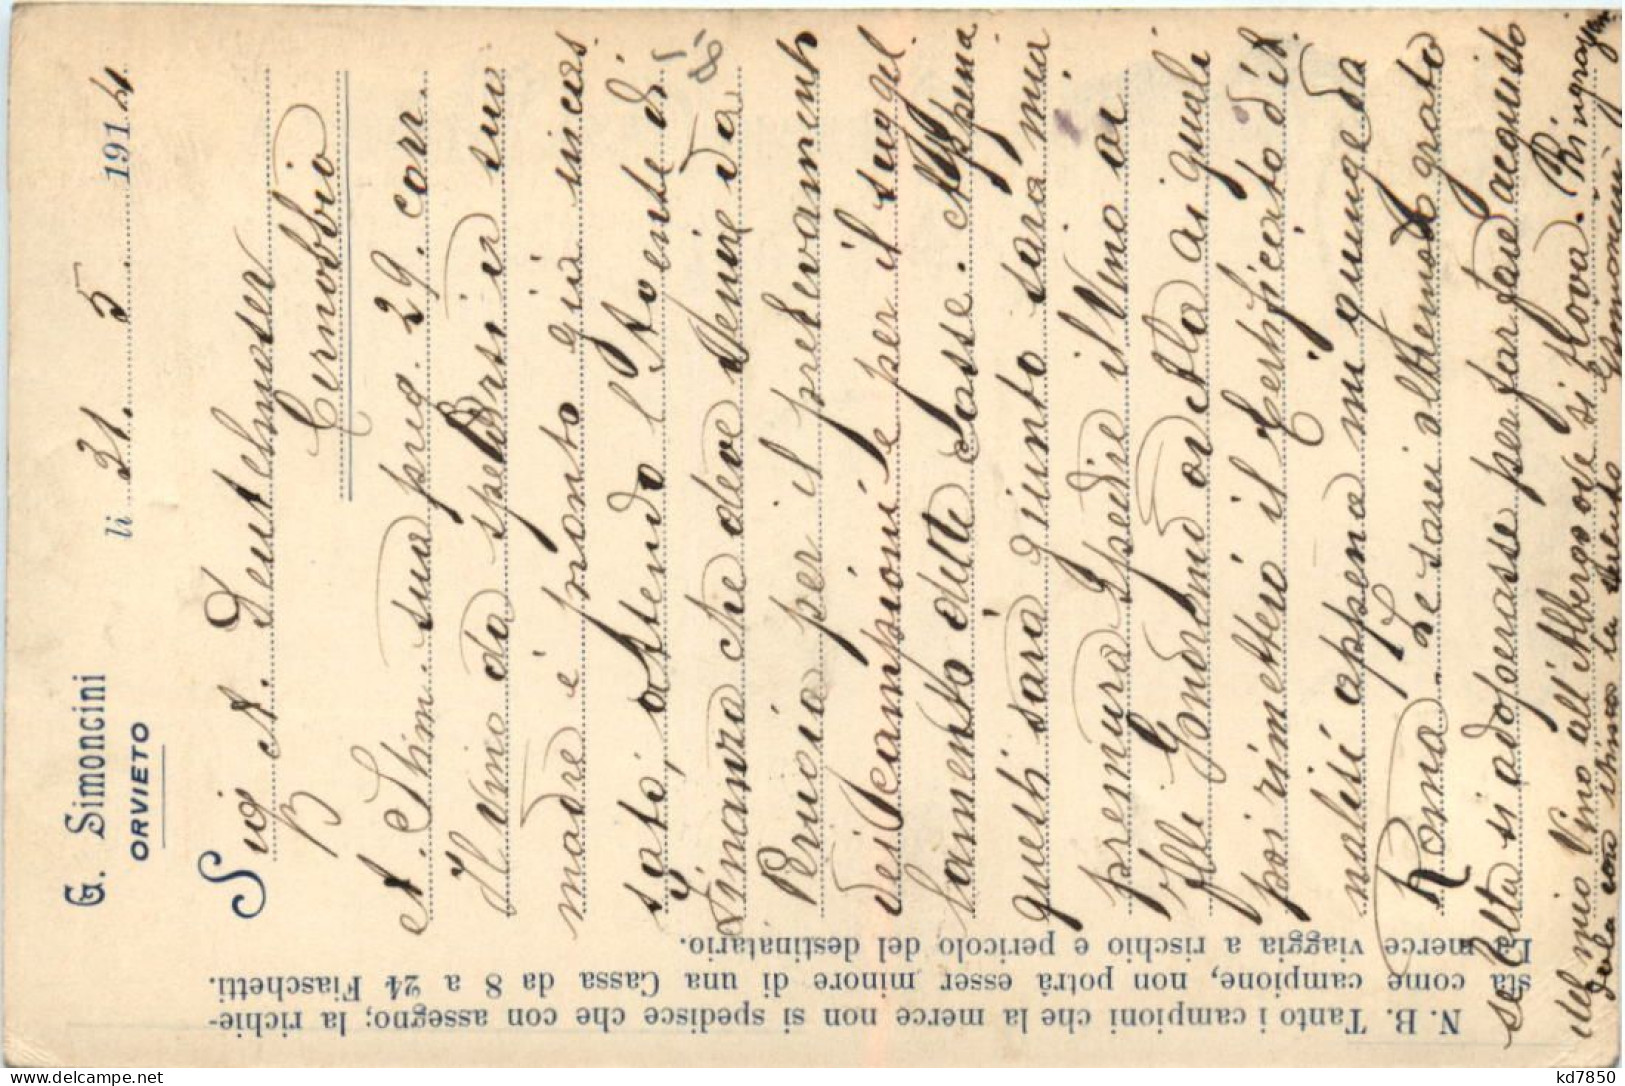 G. Simoncini
ORVIETO
li 31. 5. 1914
Sig A. Deutelmoser
Cernobbio
A. Stim. sua preg. 29. corr.
Il vino da spedirsi in suo
è pronto già
sato, attendo l'Agente di
Finanza che deve venire da
Perugia per il prelevamento
dei campioni e per il suggel
lamento delle Casse. Appena
questi sarà giunto sarà mia
premura spedire il Vino ai
ai quali
poi rimetterò il Certificato d'a
nalisi appena mi giunge da
Roma. Le sarei oltremodo grato
se Ella si adoperasse per far fare acquisto
del mio Vino all'Albergo ove si trova. Ringrazian
dola con stima la saluto GSimoncini
N. B. Tanto i campioni che la merce non si spedisce che con assegno; la richie-
sta come campione, non potrà esser minore di una Cassa da 8 a 24 Fiaschetti.
La merce viaggia a rischio e pericolo del destinatario.
kd7850